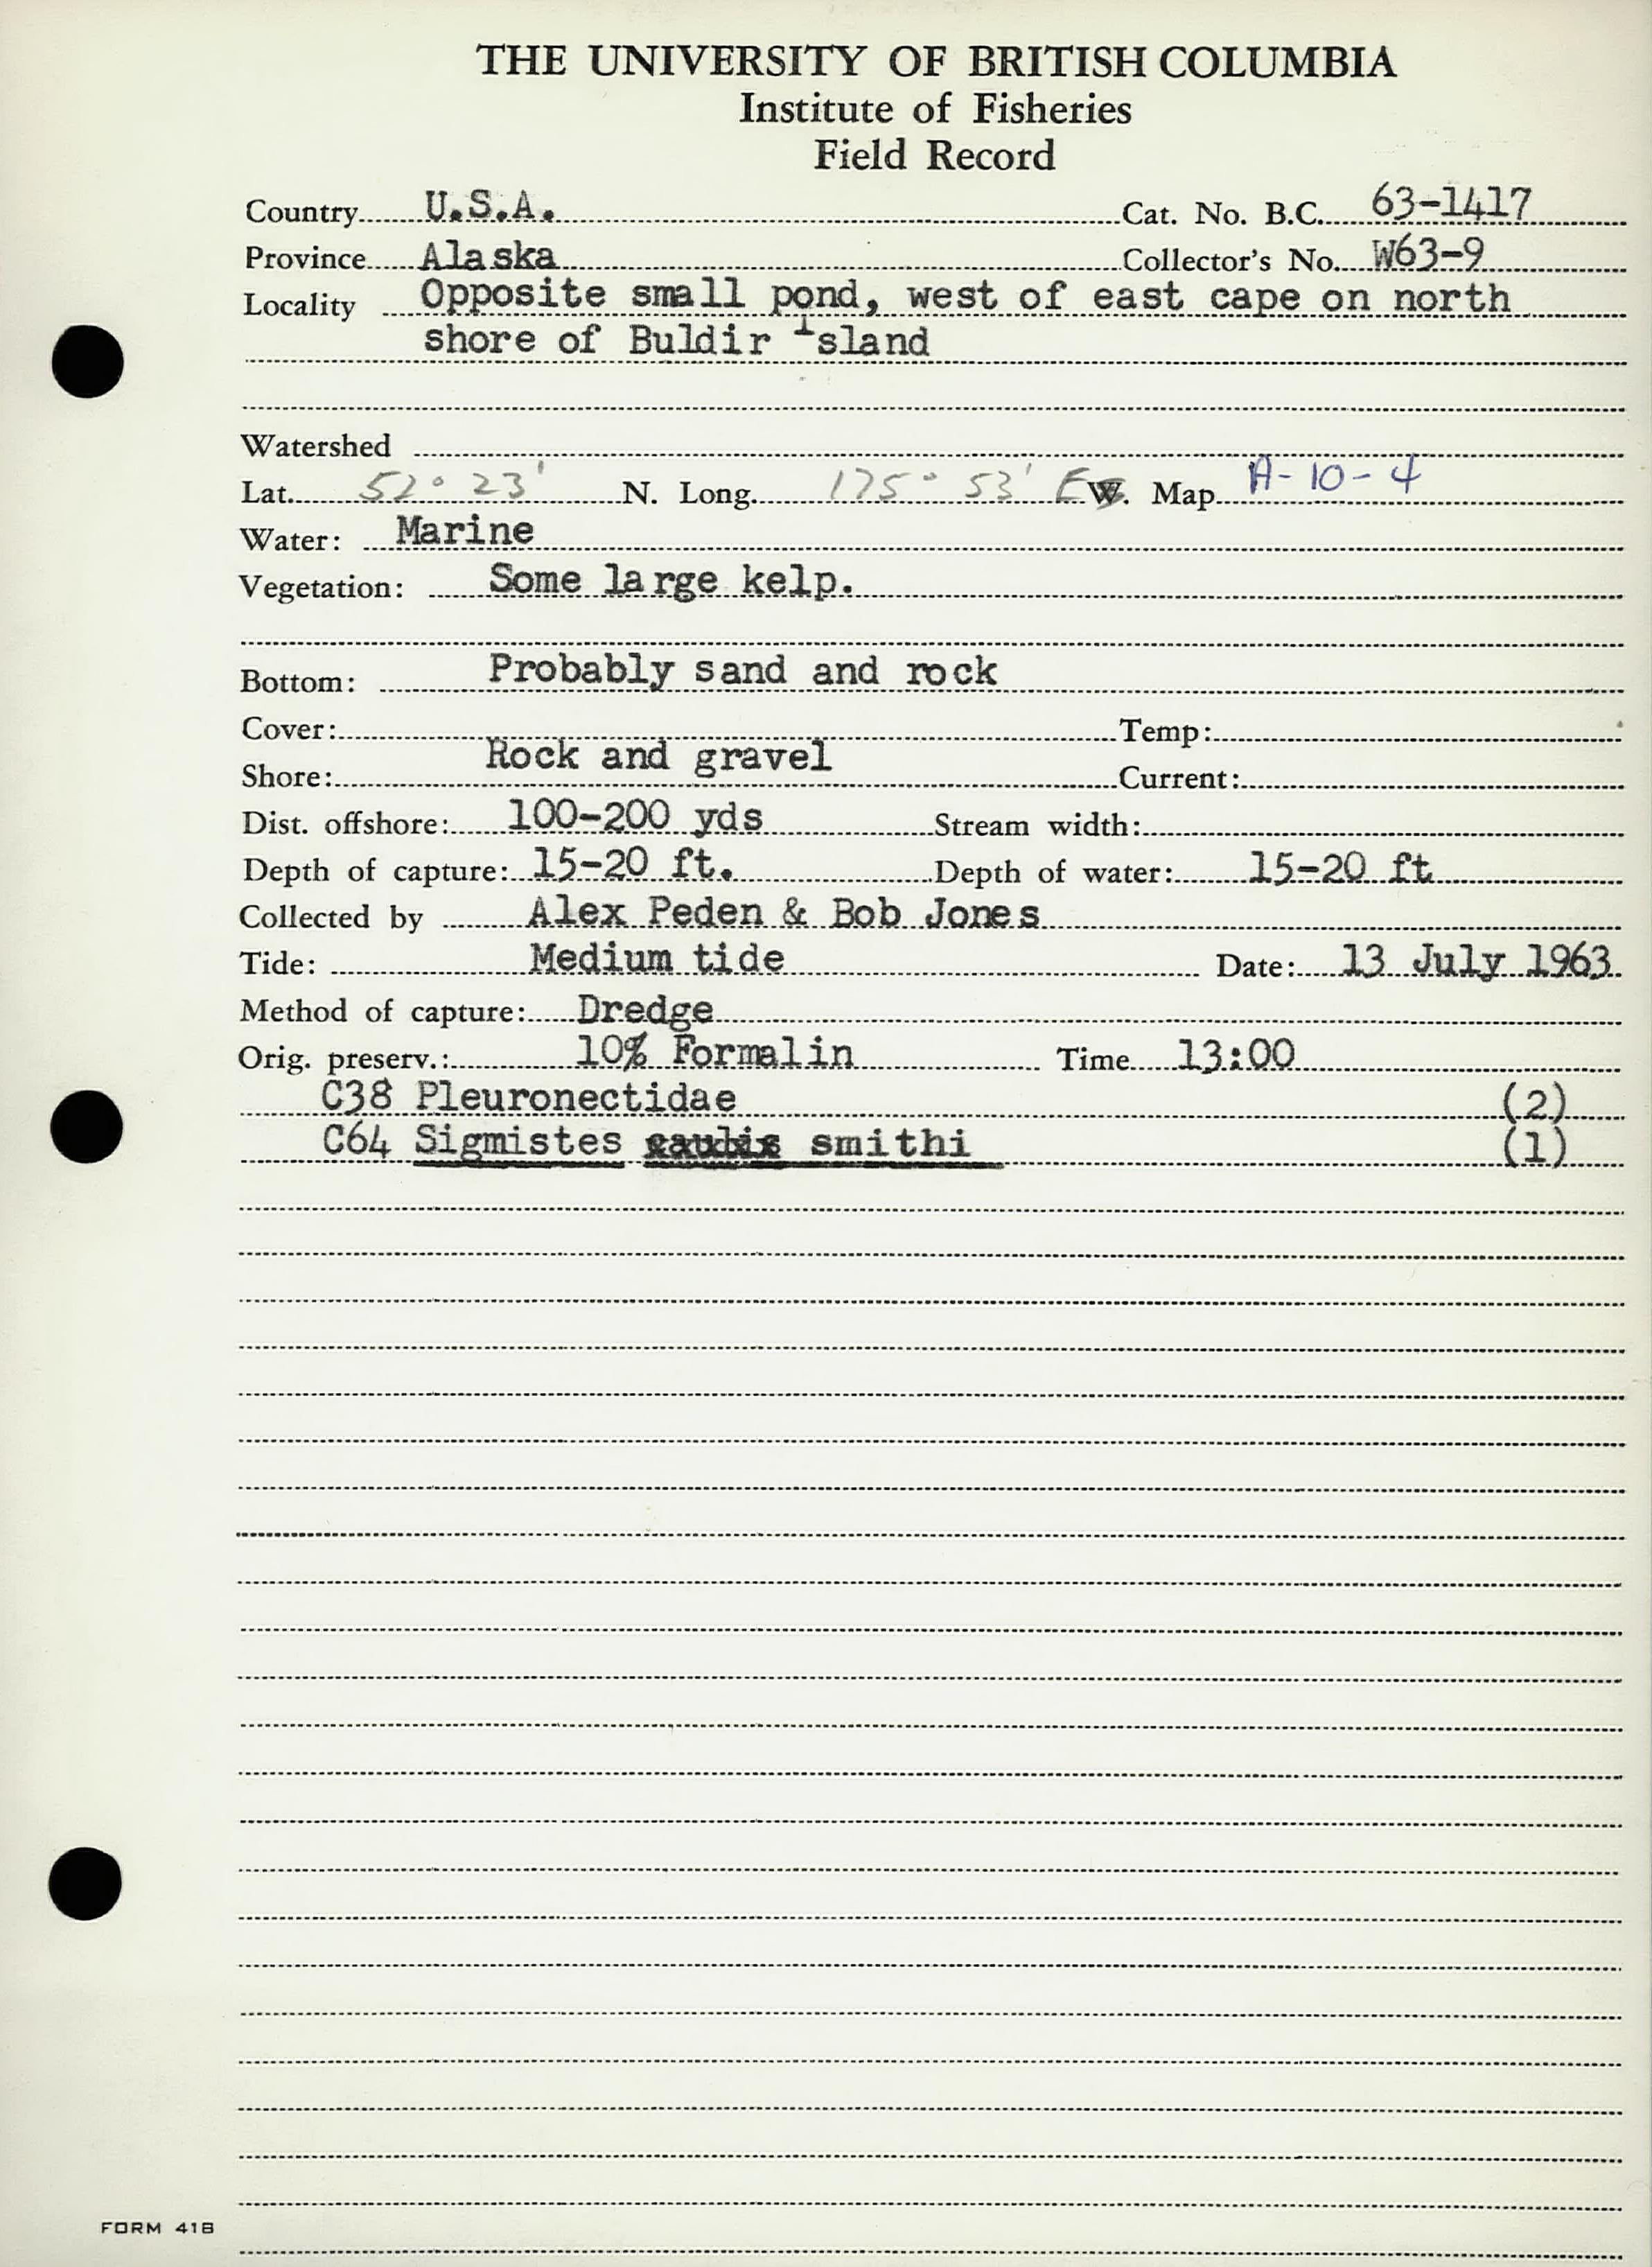 THE UNIVERSITY OF BRITISH COLUMBIA
Institute of Fisheries
Field Record
Country U.S.A. Cat. No. B.C. 63-1417
Province Alaska Collector's No. W63-9
Locality Opposite small pond, west of east cape on north
shore of Buldir Island
Watershed
Lat. 52° 23' N. Long. 175° 53' E W. Map A-10-4
Water: Marine
Vegetation: Some large kelp.
Bottom: Probably sand and rock
Cover: Temp:
Shore: Rock and gravel Current:
Dist. offshore: 100-200 yds Stream width:
Depth of capture: 15-20 ft. Depth of water: 15-20 ft
Collected by Alex Peden & Bob Jones
Tide: Medium tide Date: 13 July 1963
Method of capture: Dredge
Orig. preserv.: 10% Formalin Time 13:00
C38 Pleuronectidae (2)
C64 Sigmistes caulis smithi (1)
FORM 41B